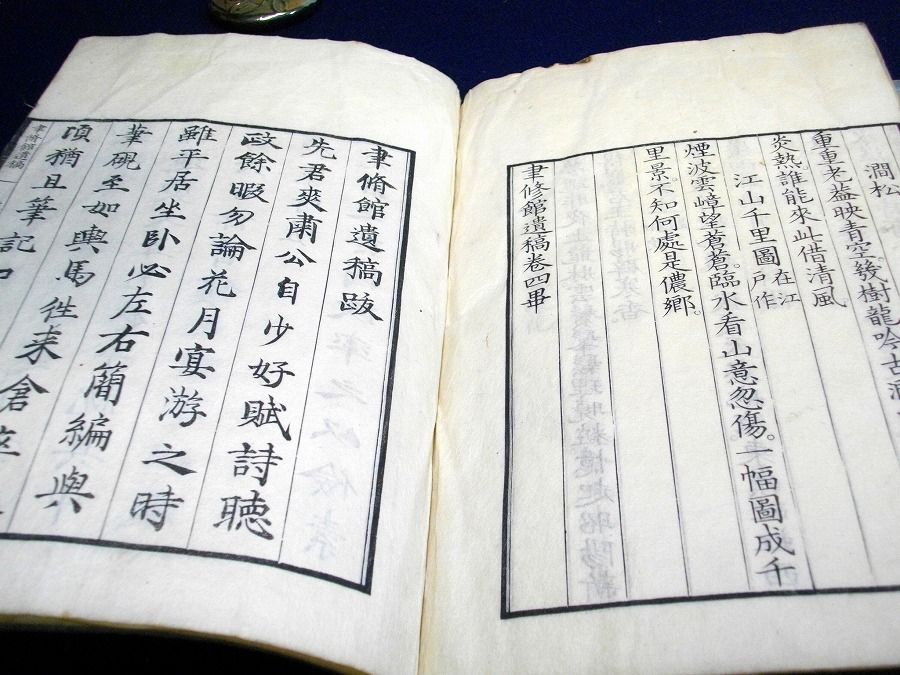 澗松
重重老蓋映青空。幾樹龍吟古澗
炎熱誰能來此借清風。
江山千里圖 在江戶作
煙波雲嶂望蒼蒼。臨水看山意忽傷。一幅圖成千
里景。不知何處是儂鄉。
聿脩館遺稿卷四畢
聿脩館遺稿跋
先君爽肅公自少好賦詩聽
政餘暇勿論花月宴游之時
雖平居坐臥必左右簡編與
筆硯至如輿馬徃来倉卒
頃猶且筆記
聿脩館遺稿